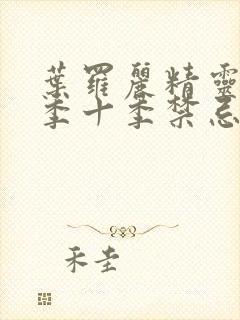 葉羅麗精靈
季十季禁忌
禾圭